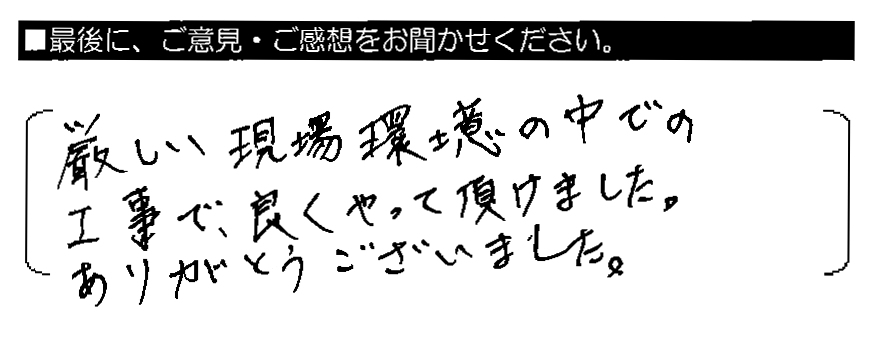 ■最後に、ご意見・ご感想をお聞かせください。
厳しい現場環境の中での
工事で、良くやって頂けました。
ありがとうございました。